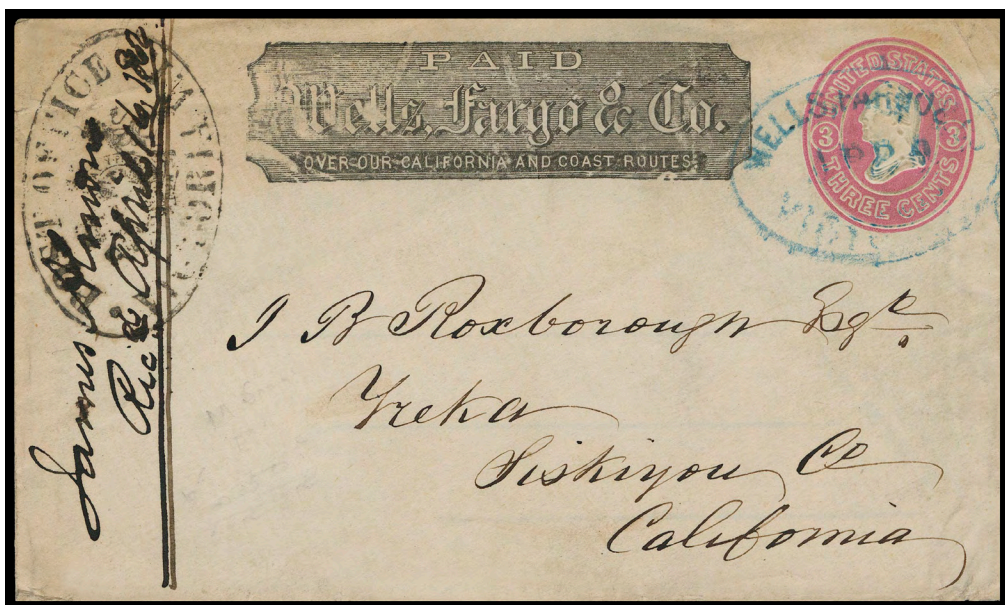 PAID
Wells, Fargo & Co.
OVER OUR CALIFORNIA AND COAST ROUTES.
UNITED STATES
3 3
THREE CENTS
WELLS, FARGO &
POST OFFICE
VICTORIA
James
Rec'd April 16
J B Roxborough Esqr.
Yreka
Siskiyou Co
California